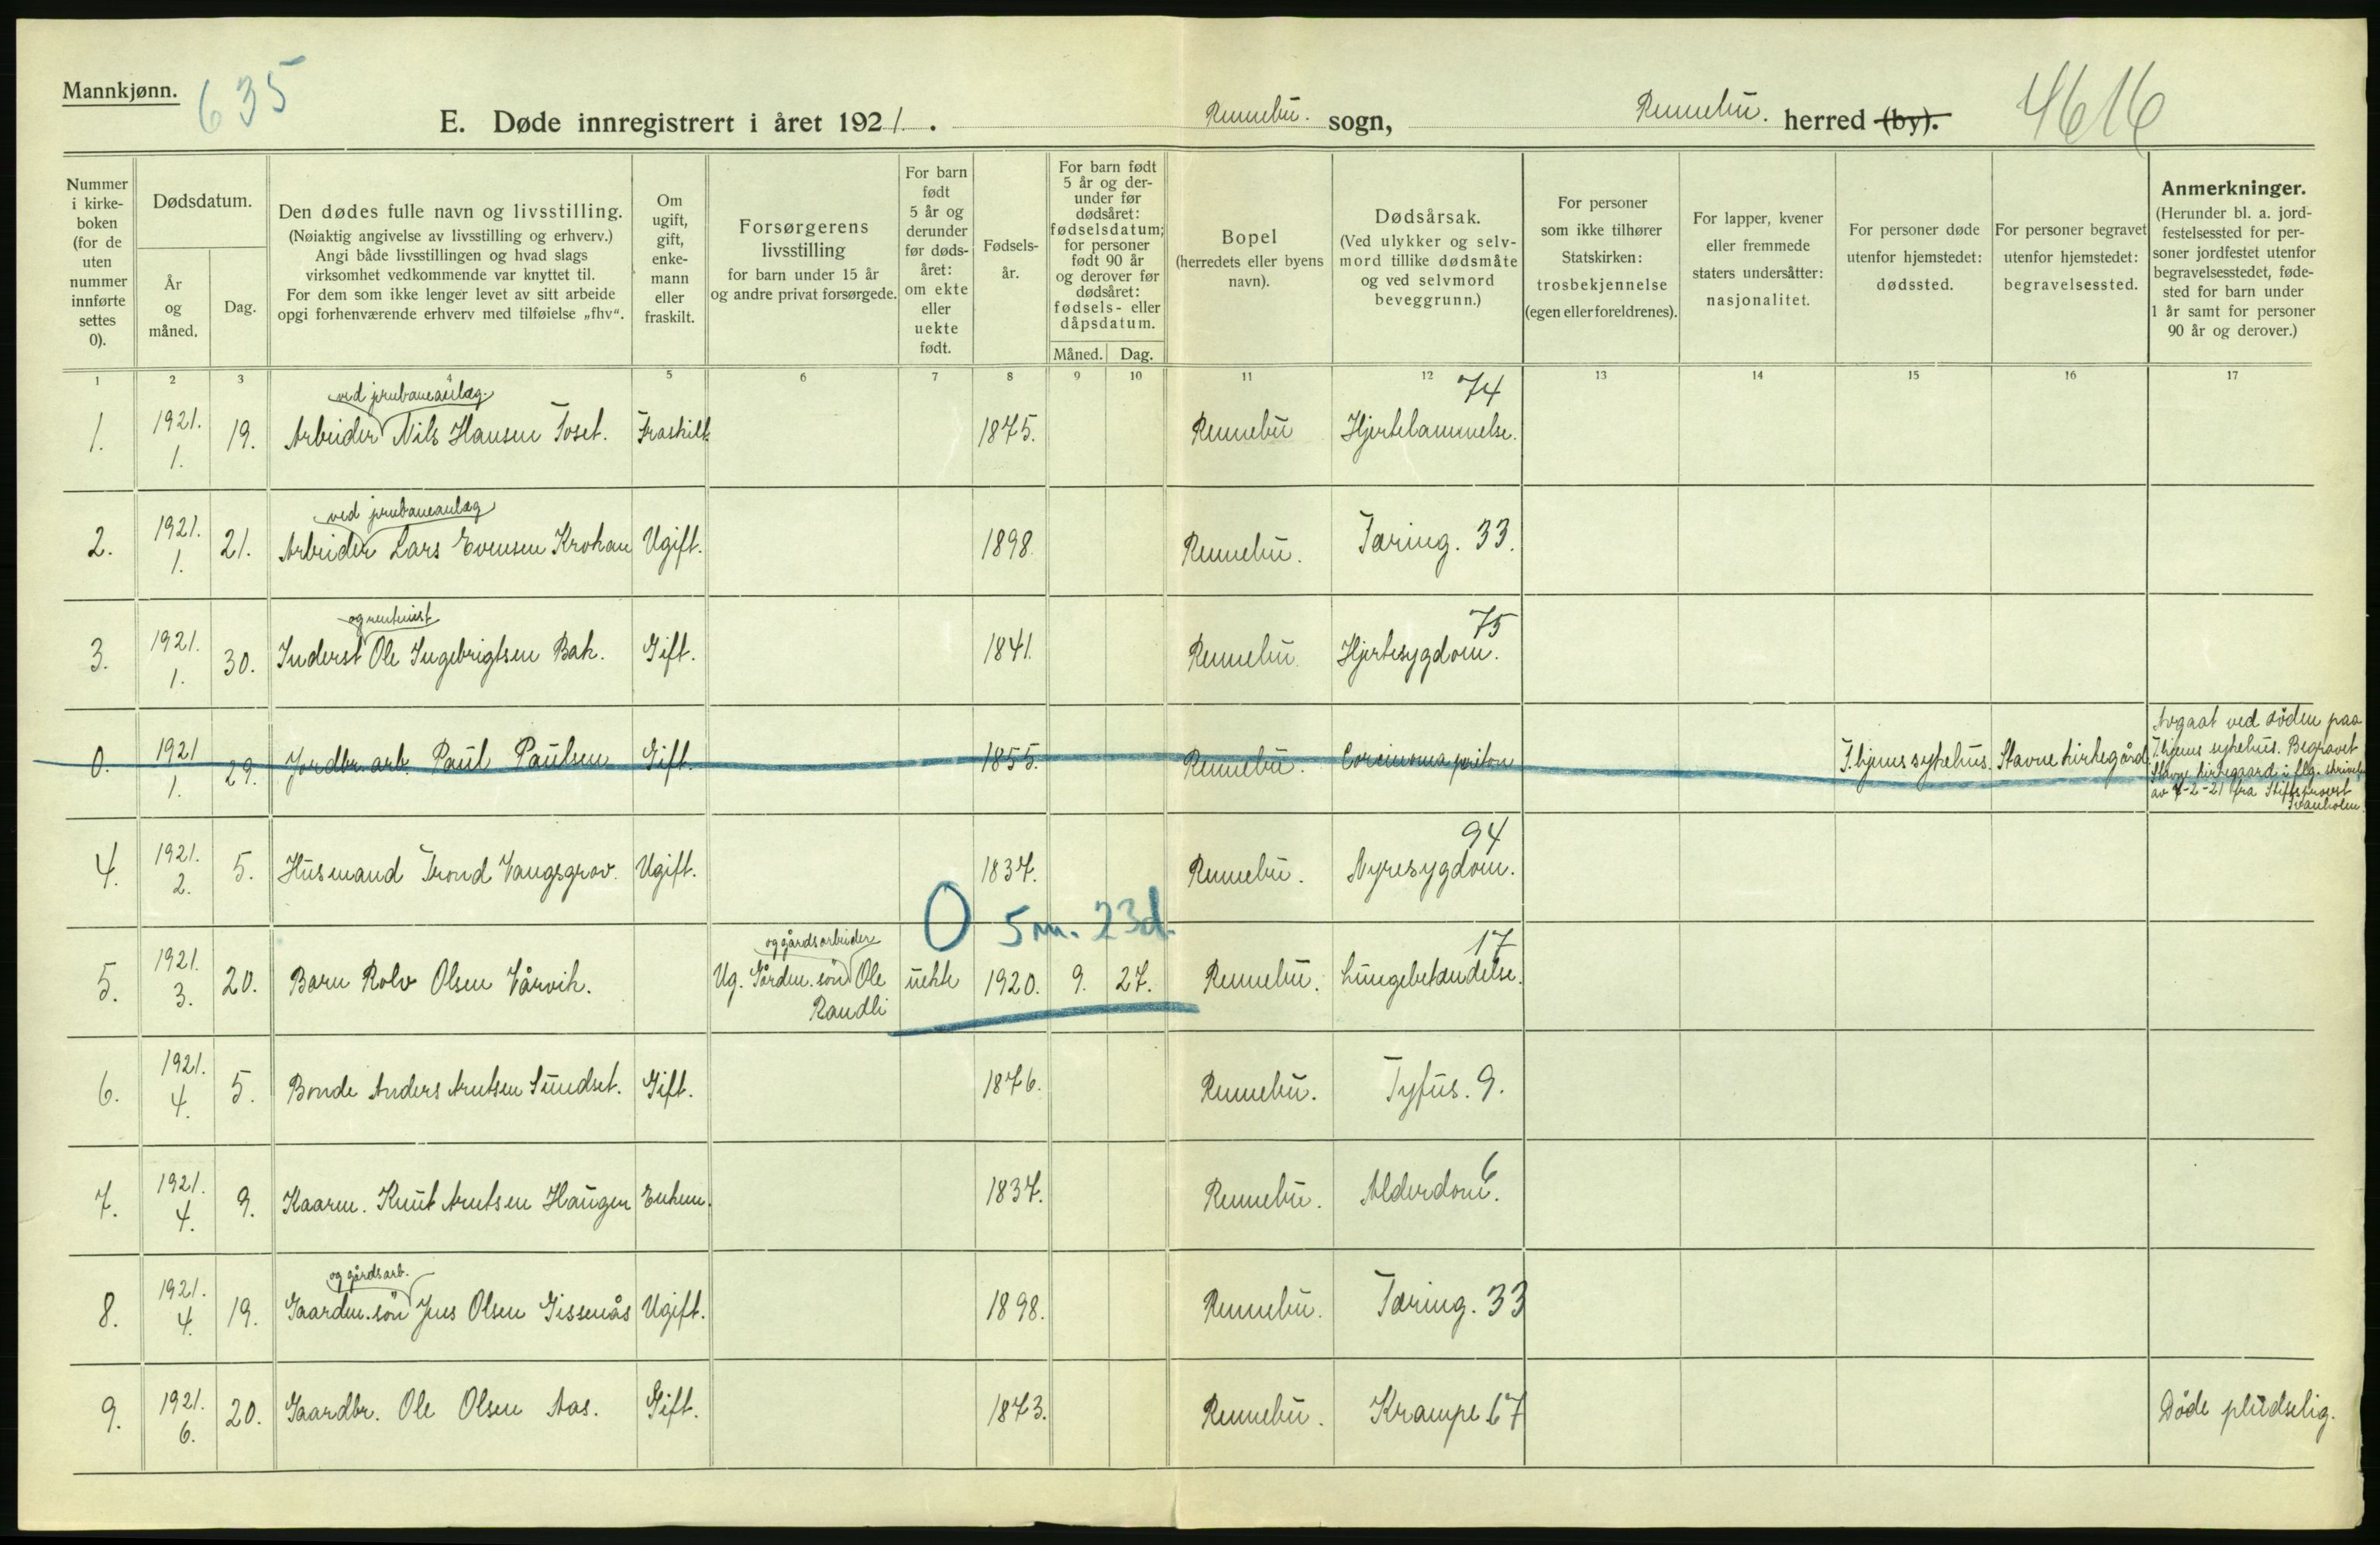 Mannkjønn.
635
E. Døde innregistrert i året 1921. Rennebu. sogn, Rennebu. herred (by).
4616
Nummer i kirke- boken (for de uten nummer innførte settes 0).
Dødsdatum.
År og måned.
Dag.
Den dødes fulle navn og livsstilling.
(Nøiaktig angivelse av livsstilling og erhverv.)
Angi både livsstillingen og hvad slags
virksomhet vedkommende var knyttet til.
For dem som ikke lenger levet av sitt arbeide
opgi forhenværende erhverv med tilføielse „fhv“.
Om ugift, gift, enke- mann eller fraskilt.
Forsørgerens
livsstilling
for barn under 15 år
og andre privat forsørgede.
For barn født 5 år og derunder før døds- året: om ekte eller uekte født.
Fødsels- år.
For barn født 5 år og der- under før dødsåret: fødselsdatum; for personer født 90 år og derover før dødsåret: fødsels- eller dåpsdatum.
Måned. Dag.
Bopel
(herredets eller byens
navn).
Dødsårsak.
(Ved ulykker og selv-
mord tillike dødsmåte
og ved selvmord
beveggrunn.)
For personer
som ikke tilhører
Statskirken:
trosbekjennelse
(egen eller foreldrenes).
For lapper, kvener
eller fremmede
staters undersåtter:
nasjonalitet.
For personer døde
utenfor hjemstedet:
dødssted.
For personer begravet
utenfor hjemstedet:
begravelsessted.
Anmerkninger.
(Herunder bl. a. jord-
festelsessted for per-
soner jordfestet utenfor
begravelsesstedet, føde-
sted for barn under
1 år samt for personer
90 år og derover.)
1 2 3 4 5 6 7 8 9 10 11 12 13 14 15 16 17
ved jernbaneanlæg. 74
1. 1921. 1. 19. Arbeider Nils Hansen Toset. Fraskilt. 1875. Rennebu Hjertelammelse.
ved jernbaneanlæg
2. 1921. 1. 21. Arbeider Lars Evensen Krokan Ugift. 1898. Rennebu. Tæring. 33.
og rentenist 75
3. 1921. 1. 30. Inderst Ole Ingebrigtsen Bak. Gift. 1841. Rennebu. Hjertesygdom.
0. 1921 1. 29. Jordbr. arb. Paul Paulsen Gift. 1855. Rennebu. Corcinoma peritom T.hjems sykehus. Stavne kirkegård
Avgaat ved døden paa
T.hjems sykehus. Begravet
Stavne kirkegaard i flg. skrivelse
av 7-2-21 fra Stiftsprovst
Svanholm.
94
4. 1921. 2. 5. Husmand Trond Vangsgrav. Ugift. 1837. Rennebu. Nyresygdom.
0 5 m. 23 d.
og gårdsarbeider 17
5. 1921. 3. 20. Barn Rolv Olsen Vårvik. Ug. Gårdm. søn Ole Randli uekte 1920. 9. 27. Rennebu. Lungebetændelse.
6. 1921. 4. 5. Bonde Anders Arntsen Sundset. Gift. 1876. Rennebu. Tyfus. 9.
6
7. 1921. 4. 9. Kaarm. Knut Arntsen Haugen Enkem. 1837. Rennebu. Alderdom.
og gårdsarb.
8. 1921. 4. 19. Gaardm. søn Jens Olsen Gissenås Ugift. 1898. Rennebu. Tæring. 33
9. 1921. 6. 20. Gaardbr. Ole Olsen Aas. Gift. 1873. Rennebu. Krampe 67 Døde pludselig.